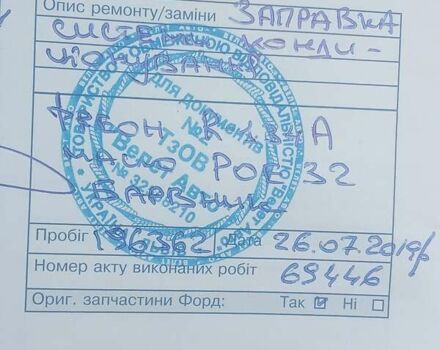 Опис ремонту/заміни ЗАПРАВКА
СИСТЕМИ КОНДИ-
ЦІОНУВАННЯ
ФРЕОН R 134A
МАСЛО РОЕ 32
БАРВНИК
Для документів
№2
ТзОВ
Верет Авто
Пробіг 196362 Дата 26.07.2019р
Номер акту виконаних робіт 69446
Ориг. запчастини Форд: Так ☑ Ні ☐